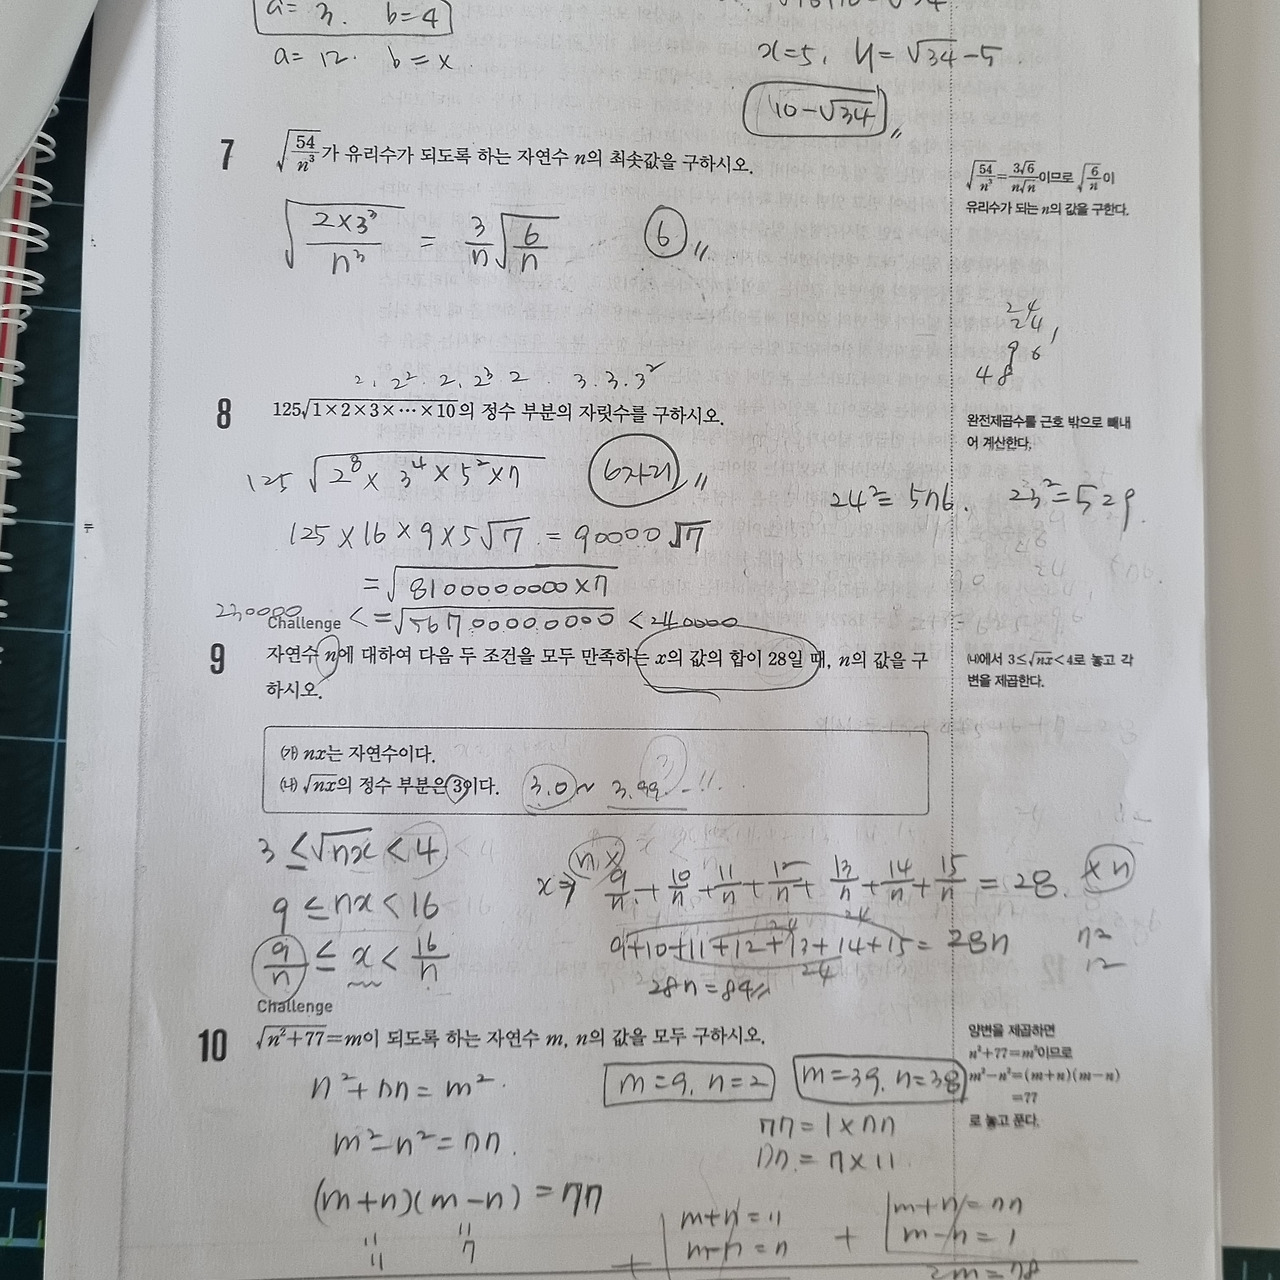 a= 3. b=4
a= 12. b= x
x=5, y=√34-5
10-√34
7 √(54/n³)가 유리수가 되도록 하는 자연수 n의 최솟값을 구하시오.
√(54/n³)=3√6/n√n이므로 √(6/n)이
유리수가 되는 n의 값을 구한다.
√(2×3³/n³) = 3/n √(6/n) 6
24
24
96
48
2. 2². 2. 2³ 2 3. 3. 3²
8 125√(1×2×3×⋯×10)의 정수 부분의 자릿수를 구하시오.
완전제곱수를 근호 밖으로 빼내
어 계산한다.
125 √(2⁸×3⁴×5²×7) 6자리
24²=576. 23²=529.
125×16×9×5√7 = 90000√7
=√(8100000000×7)
230000 < =√56700000000 < 240000
Challenge
9 자연수 n에 대하여 다음 두 조건을 모두 만족하는 x의 값의 합이 28일 때, n의 값을 구
하시오.
㈏에서 3≤√nx<4로 놓고 각
변을 제곱한다.
㈎ nx는 자연수이다.
㈏ √nx의 정수 부분은 3이다. 3.0~ 3.99
3 ≤√nx < 4
9 ≤ nx < 16
9/n ≤ x < 16/n
nx
x⇒ 9/n + 10/n + 11/n + 12/n + 13/n + 14/n + 15/n = 28. ×n
9+10+11+12+13+14+15= 28n
24 24
24
28n = 84
72
12
Challenge
10 √(n²+77)=m이 되도록 하는 자연수 m, n의 값을 모두 구하시오.
양변을 제곱하면
n²+77=m²이므로
m²-n²=(m+n)(m-n)
=77
로 놓고 푼다.
n²+77= m².
m=9, n=2 m=39, n=38
m²-n²=77.
77=1×77
77=7×11
(m+n)(m-n) =77
11 7
m+n=11
m-n=7
+
m+n=77
m-n=1
+
2m=78